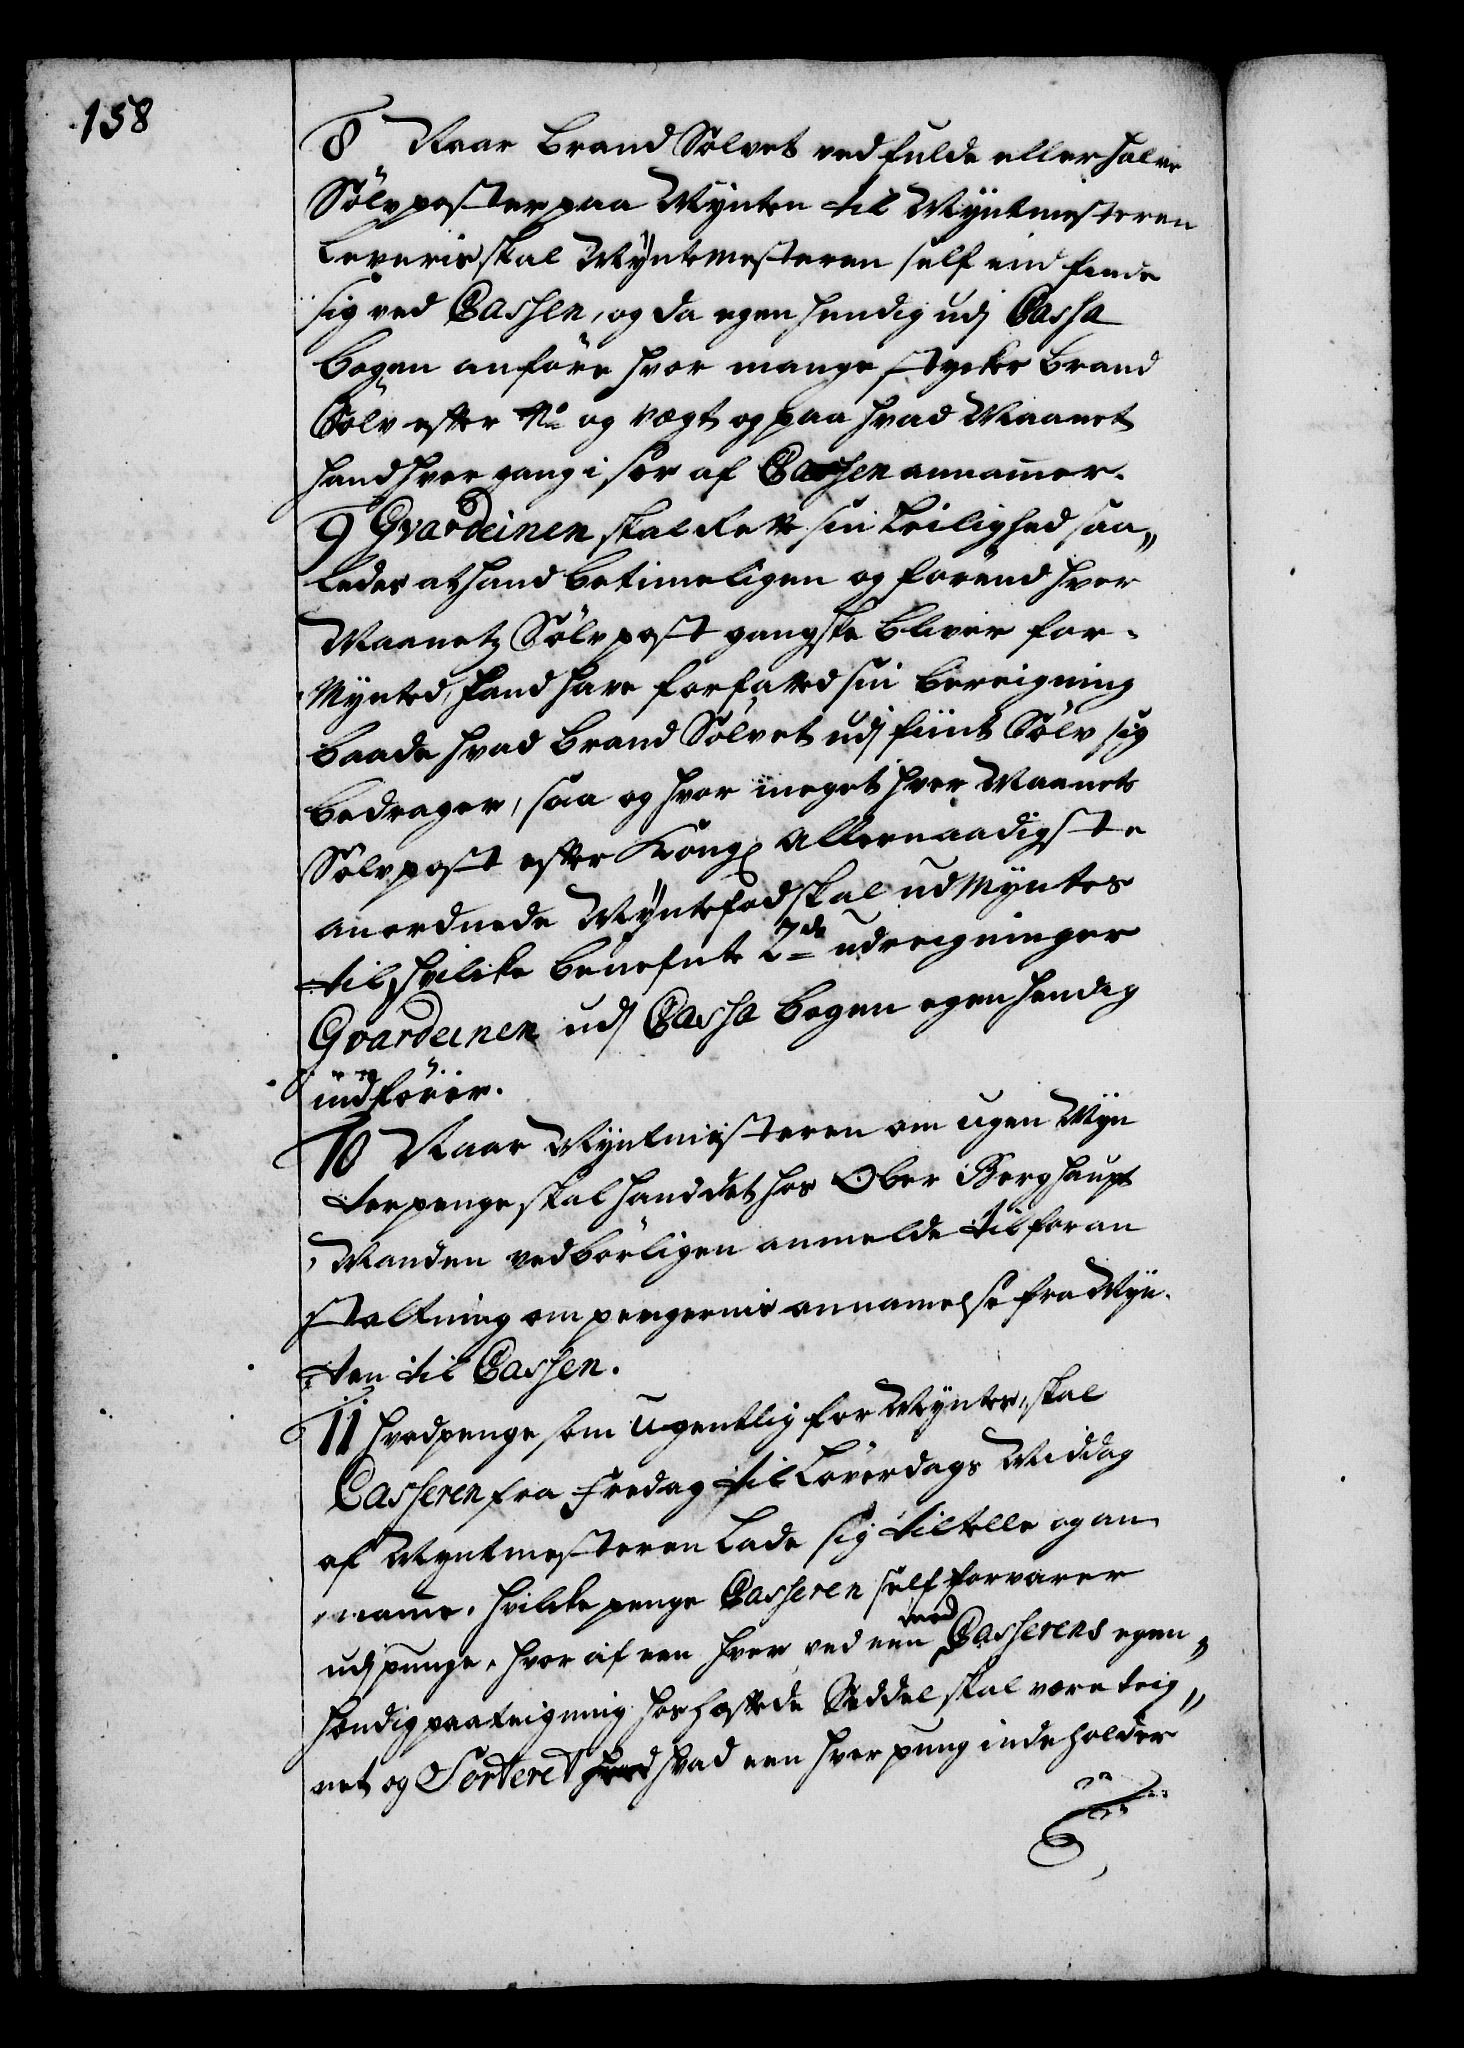 158
8 Naar Brand Sølvet ved fulde eller halve
Sølvposter paa Mynten til Myntmesteren
leveris skal Myntemesteren self ind finde
sig ved Cassen, og da egen hendig udj Cassa
bogen anføre hvor mange stycker Brand
Sølv efter No og vegt og paa hvad Maanet
hand hver gang i sær af Cassen annammer.
9 Gvardeinen skal rette sin Leilighed saa„
ledes at hand betimeligen og førend hver
Maanetz Sølvpost gangske bliver for-
Mynted, hand have forfatted sin bereigning
baade hvad Brand Sølvet udj fiint Sølv sig
bedrager, saa og hvor meget hver Maanets
Sølvpost efter Kongl Allernaadigste
anordnede Myntefod skal udMyntes
til hvilcke benefnte 2de udreigninger
Gvardeinen udj Cassa bogen egenhendig
indfører.
10 Naar Myntmesteren om ugen Myn
ter penge skal hand det hos Ober Berghaupt
Manden vedbørligen anmelde til foran
staltning om pengernis annamelse fra Myn-
ten til Cassen.
11 Hvad penge som Ugentlig for Myntes, skal
Casseren fra Fredag til Løverdags Middag
af Myntmesteren lade sig tiltelle og an
name, hvilcke penge Casseren self forvarer
udj punge, hvor af een hver ved een med Casserens egen„
hændig paateigning hoshæftede Seddel skal være teig„
net og Sorteret hvad een hver pung indeholder